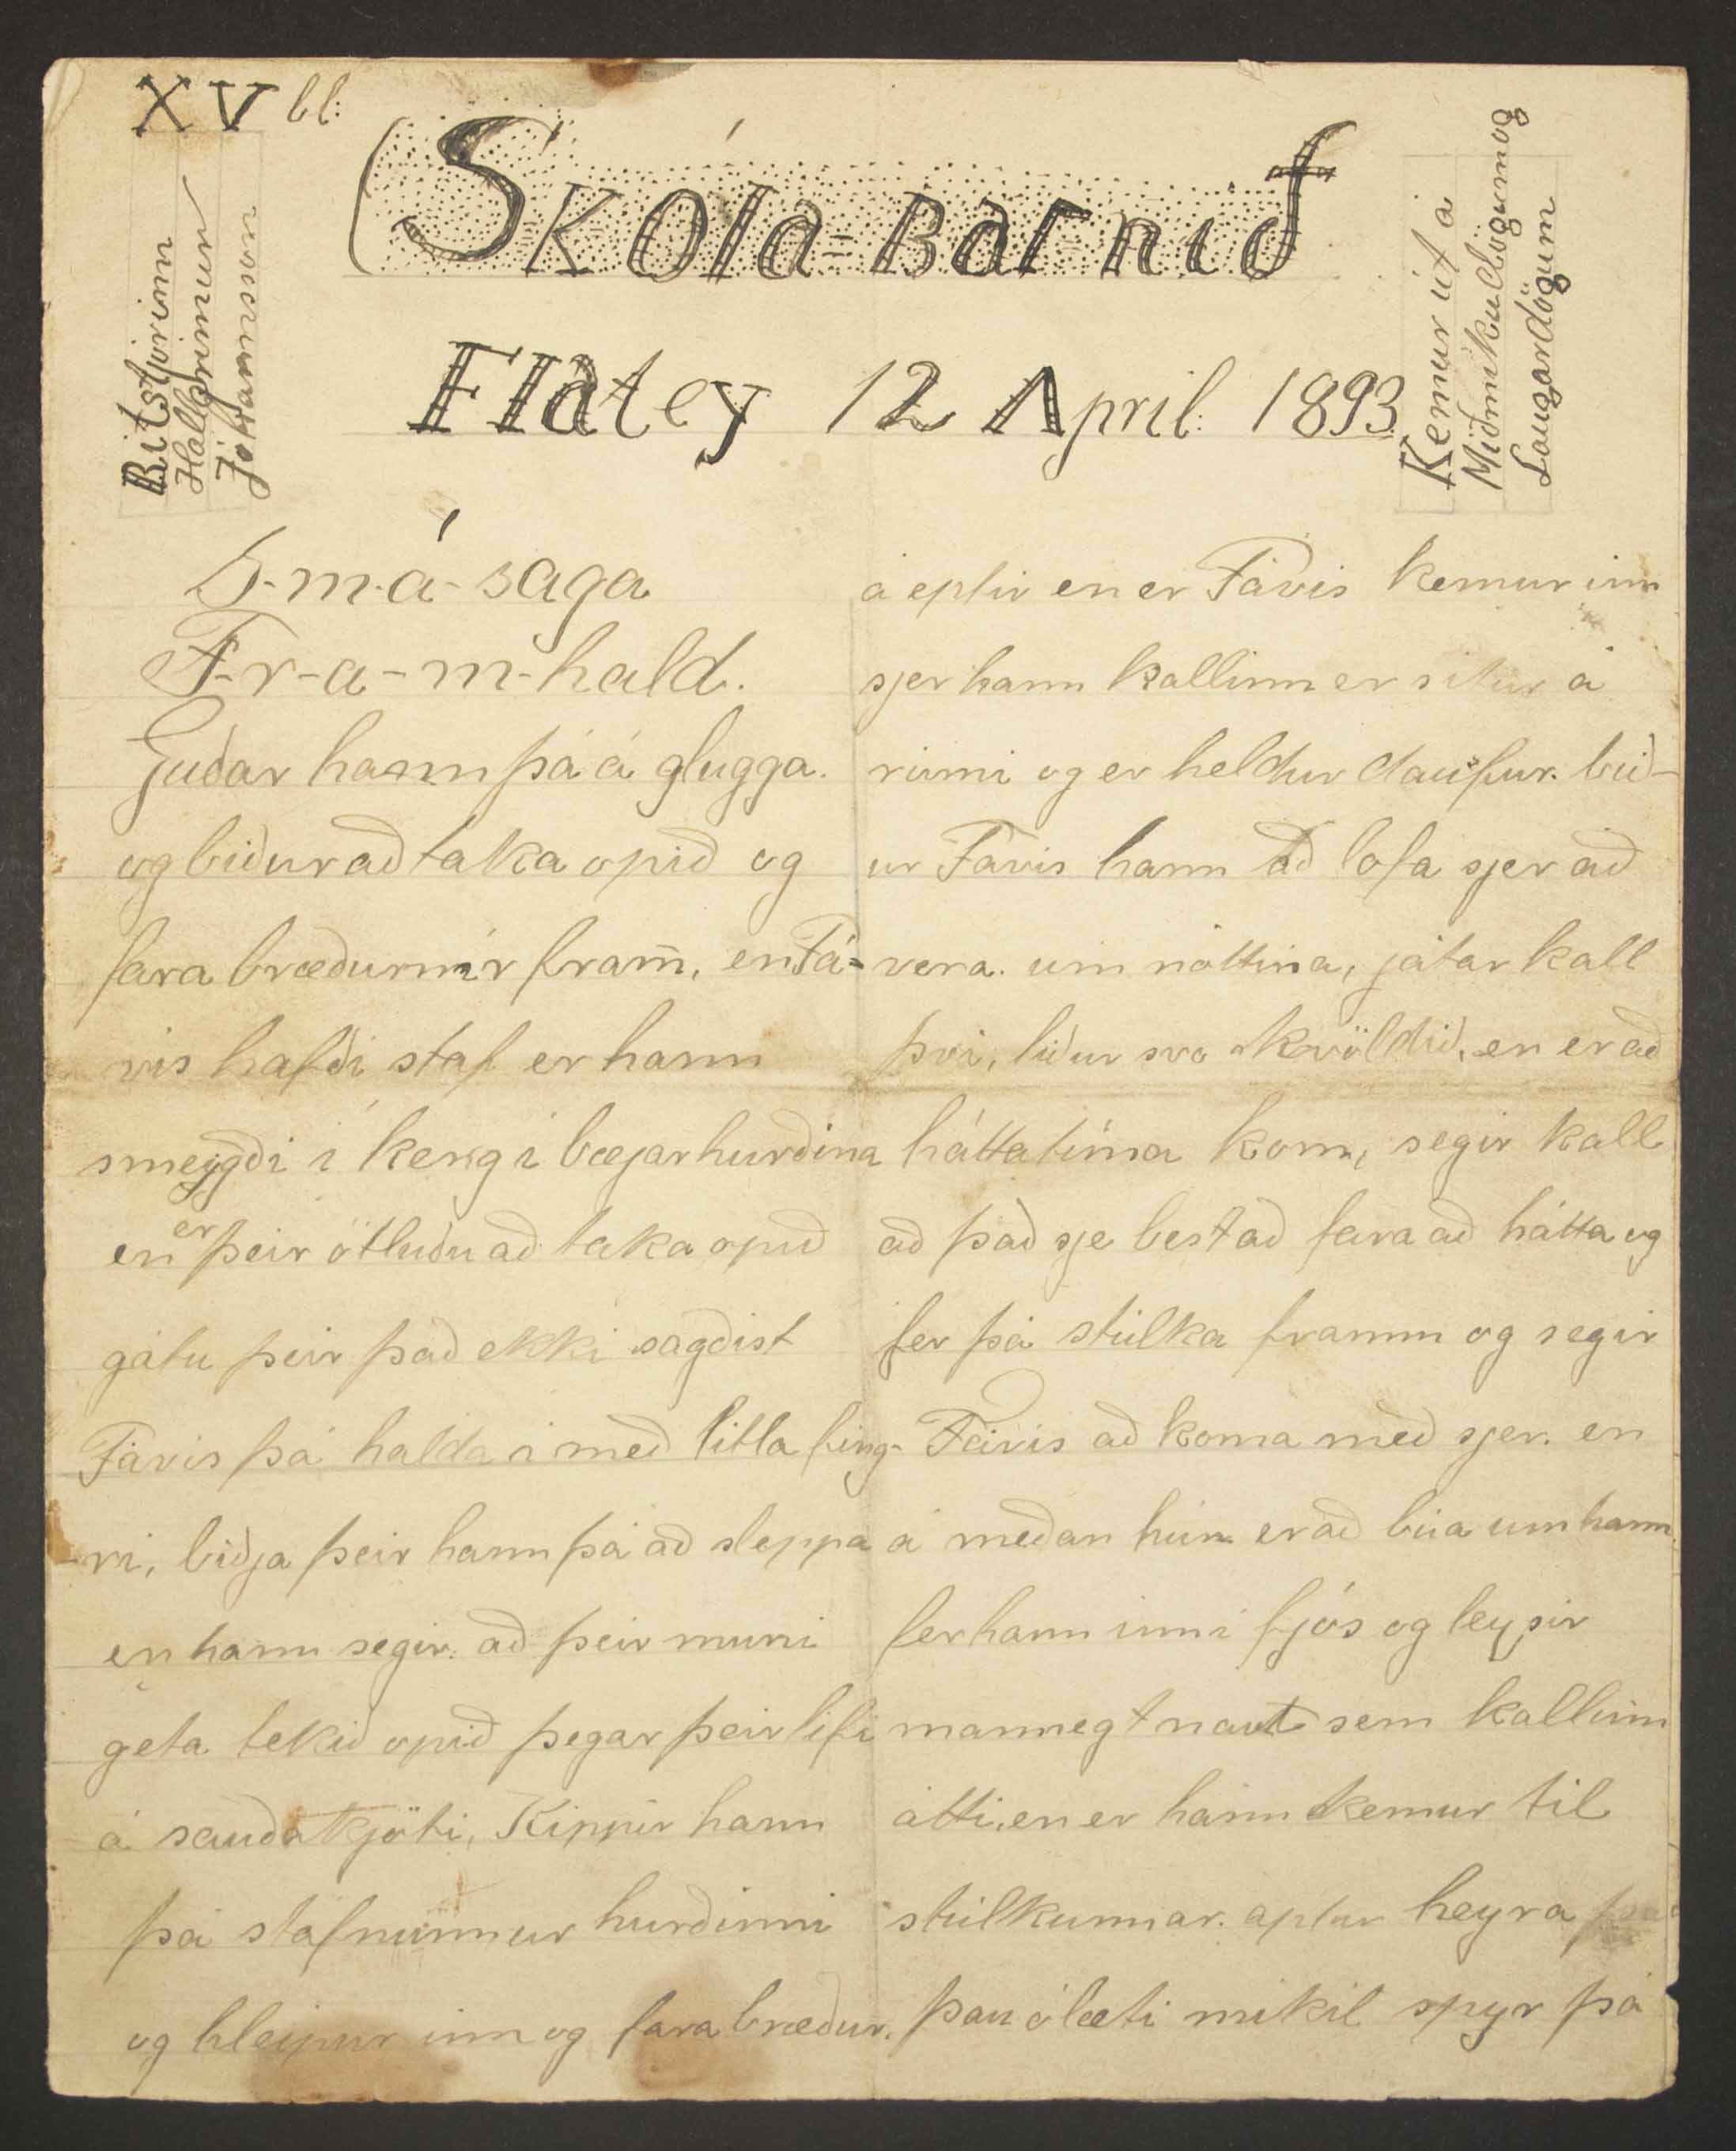 XV bl:
Skóla-Barnið
Flatey 12 April 1893.
Ritstjórinn
Hallgrimur
Jökulsson
Kemur út á
Miðmikudögum og
Laugardögum
S-m-á-saga
F-r-a-m-hald.
Guðar hann þá á glugga.
og biður að taka opið og
fara bræðurnir fram, en Fá-
vis hafði staf er hann
smeygði í keng í bæjarhurðina
en er þeir ötluðu að taka opið
gátu þeir það ekki sagðist
Fávis þá halda í með litla fing-
-ri, biðja þeir hann þá að sleppa
en hann segir að þeir muni
geta tekið opið þegar þeir lifi
á sauðakjöti, Kippir hann
þá stafnum ur hurðinni
og hleipur inn og fara bræður.
á eptir en er Fávis kemur inn
sjer hann kallinn er situr á
rúmi og er heldur daufur. bið-
ur Fávis hann að lofa sjer að
vera um nóttina, játar kall
því, liður svo kvöldið, en er að
háttatíma kom, segir kall
að það sje best að fara að hátta og
fer þá stúlka framm og segir
Fávis að koma með sjer. en
á meðan hún er að búa um hann
fer hann inn í fjós og leysir
mannegt naut sem kallinn
átti, en er hann kemur til
stúlkunnar aptur heyra
þau ólæti mikil spyr þá